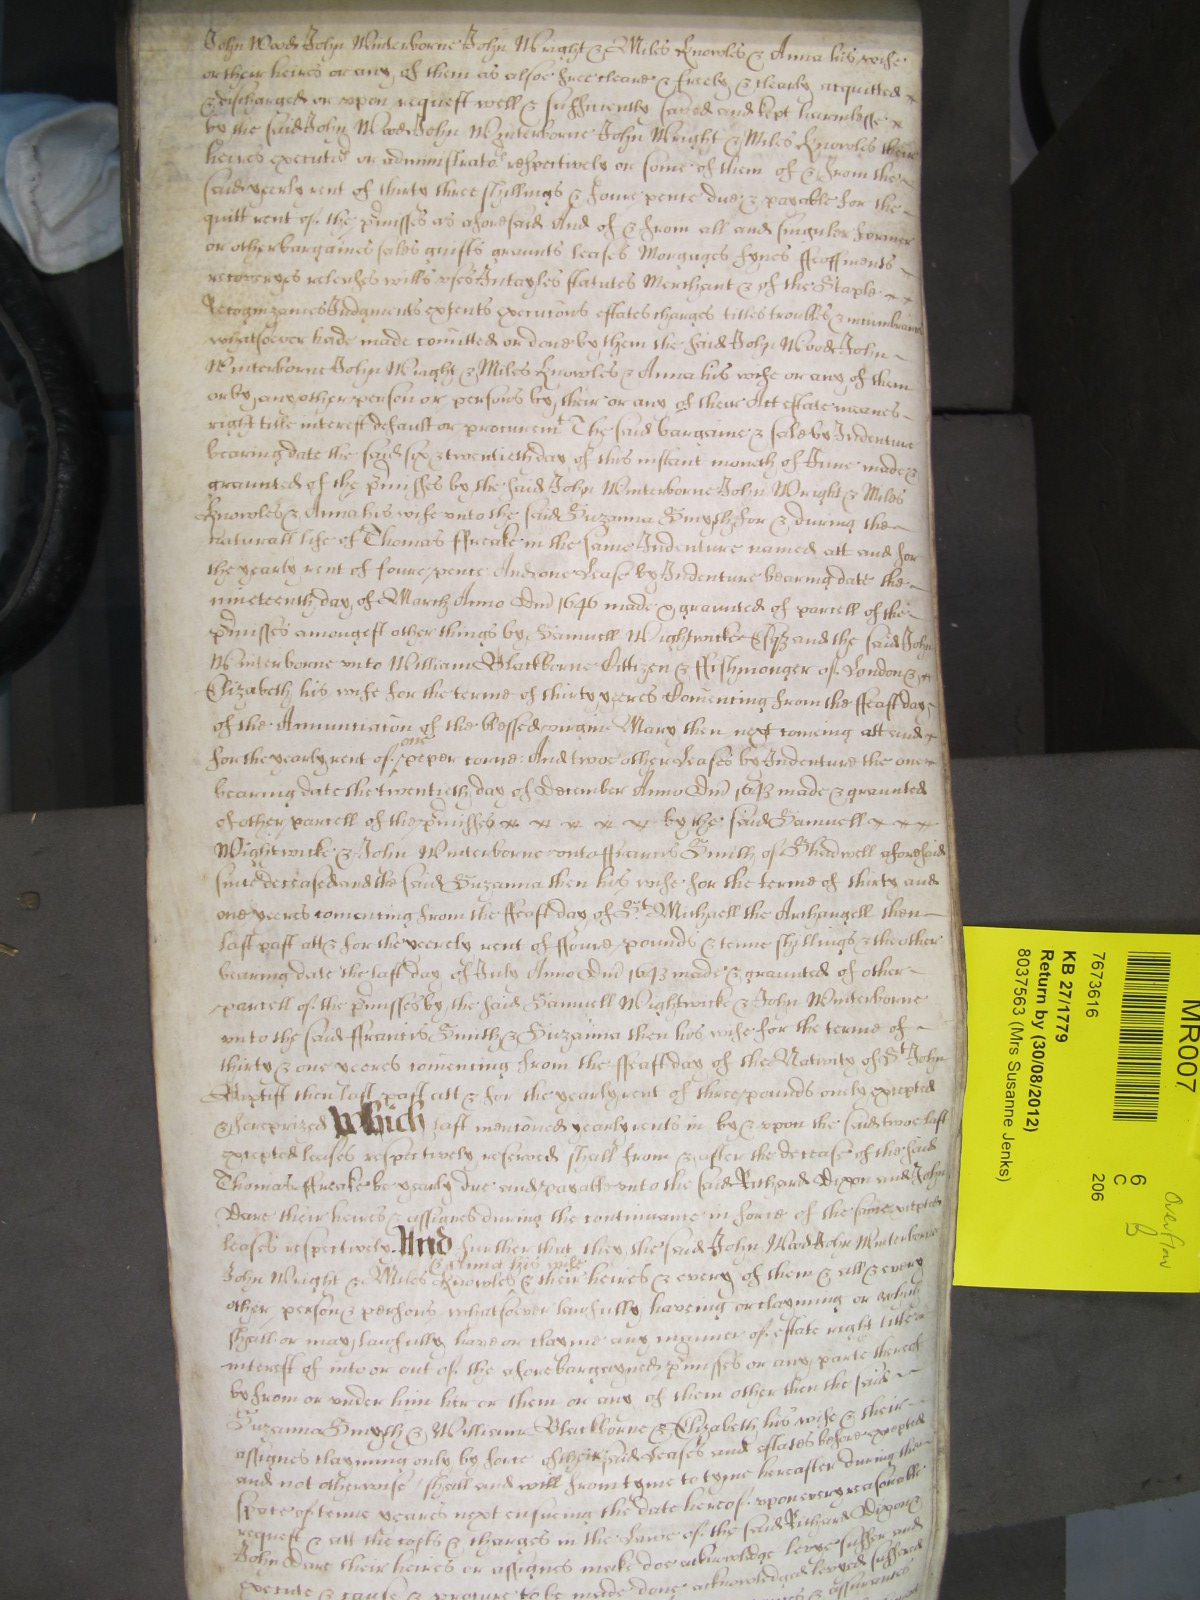 John Wood John Winterborne John Wright & Miles Knowles & Anna his wife
or their heires or any of them as alsoe free cleare & freely & clearly acquitted x
& discharged or upon request well & sufficiently saved and kept harmlesse x
by the said John Wood John Winterborne John Wright & Miles Knowles their
heires executrs or administratrs respectively or some of them of & from the
said yeerly rent of thirty three shyllings & foure pence due & payable for the
quitt rent of the pmisses as aforesaid And of & from all and singuler former
or other bargaines sales guifts graunts leases Morgages fynes ffeoffments
recoveryes releases wills uses Intayles statutes Merchant & of the Staple x x
Recognizances Judgments extents execucons estates charges titles troubles & incumbrances
whatsoever hade made comitted or done by them the said John Wood John
Winterborne John Wright & Miles Knowles & Anna his wife or any of them
or by any other person or persons by their or any of their Act estate meanes
right title interest default or procuremt The said bargaine & sale by Indenture
bearing date the said six & twentieth day of this instant moneth of June made &
graunted of the pmisses by the said John Winterborne John Wright & Miles
Knowles & Anna his wife unto the said Suzanna Smyth for & during the
naturall life of Thomas ffreake in the same Indenture named att and for
the yearly rent of foure pence And one Lease by Indenture bearing date the
nineteenth day of March Anno Dni 1646 made & graunted of parcell of the
pmisses amongest other things by Samuell Wightwicke Esqz and the said John
Winterborne unto William Blackborne Cittizen & ffishmonger of London &
Elizabeth his wife for the terme of thirty yeeres Comencing from the ffeast day
of the Annunciacon of the blessed virgin Mary then next coming att and x
for the yearly rent of one peper corne And twoe other Leases by Indenture the one
bearing date the twentieth day of December Anno Dni 1643 made & graunted
of other parcell of the pmisses x x x x x by the said Samuell x x x
Wightwicke & John Winterborne unto ffrancis Smith of Shadwell aforesaid
since deceased and the said Suzanna then his wife for the terme of thirty and
one yeeres comencing from the ffeast day of St Michaell the Archangell then
last past att & for the yeerely rent of ffoure pounds & tenne shyllings & the other
bearing date the last day of July Anno Dni 1643 made & graunted of other
parcell of the pmisses by the said Samuell Wightwicke & John Winterborne
unto the said ffrancis Smith & Suzanna then his wife for the terme of
thirty & one yeeres comencing from the ffeast day of the Nativity of St John
Baptist then last past att & for the yearly rent of three pounds only excepted
& foreprized Which last mencioned yearly rents in by & upon the said twoe last
excepted leases respectively reserved shall from & after the decease of the said
Thomas ffreake be yearly due and payable unto the said Richard Dixon and John
Dare their heires & assignes during the continuance in force of the same excepted
leases respectively. And further that they the said John Wood John Winterborne
John Wright & Miles Knowles & Anna his wife & their heires & every of them & all & every
other person & persons whatsoever lawfully haveing or clayming or which
shall or may lawfully have or clayme any manner of estate right title
interest of into or out of the afore bargayned pmisses or any parte thereof
by from or under him her or them or any of them other then the said
Suzanna Smyth & William Blackborne & Elizabeth his wife & their
assignes clayming only by force of their said Leases and estates before excepted
and not otherwise shall and will from tyme to tyme hereafter during the
space of tenne yeares next ensueing the date hereof upon every reasonable
request & att the costs & charges in the Lawe of the said Richard Dixon &
John Dare their heires or assignes make doe acknowledge levye suffer and
execute & cause & procure to be made done acknowledged levyed suffered
& assurances
MR007
6
C
206
7673616
KB 27/1779
Return by (30/08/2012)
8037563 (Mrs Susanne Jenks)